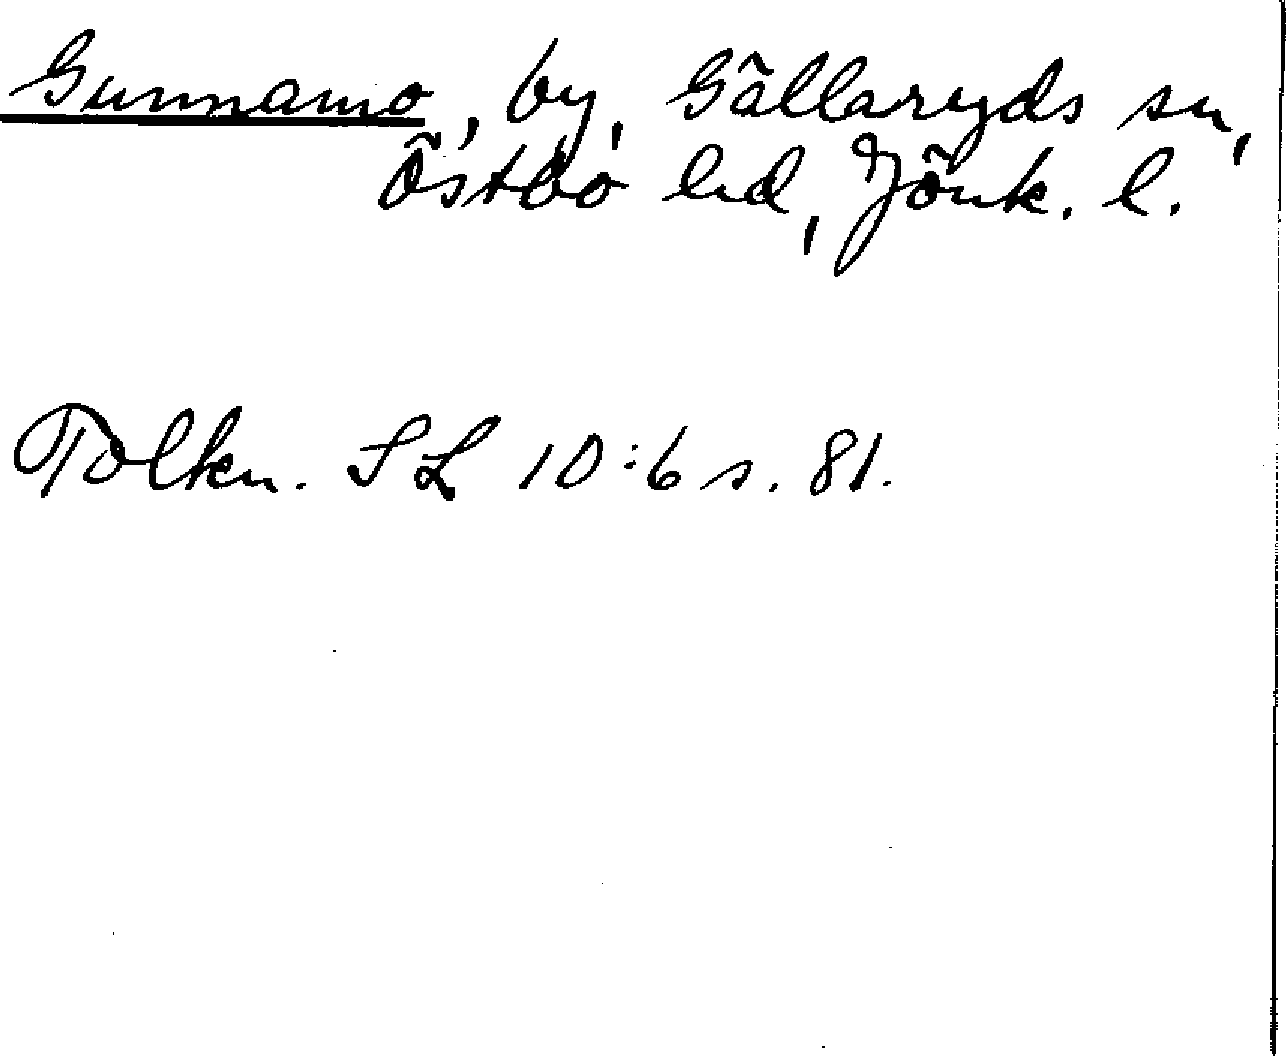 Gunnamo, by, Gällaryds sn,
Östbo hd, Jönk. l.
Tolkn. SL 10:6 s. 81.